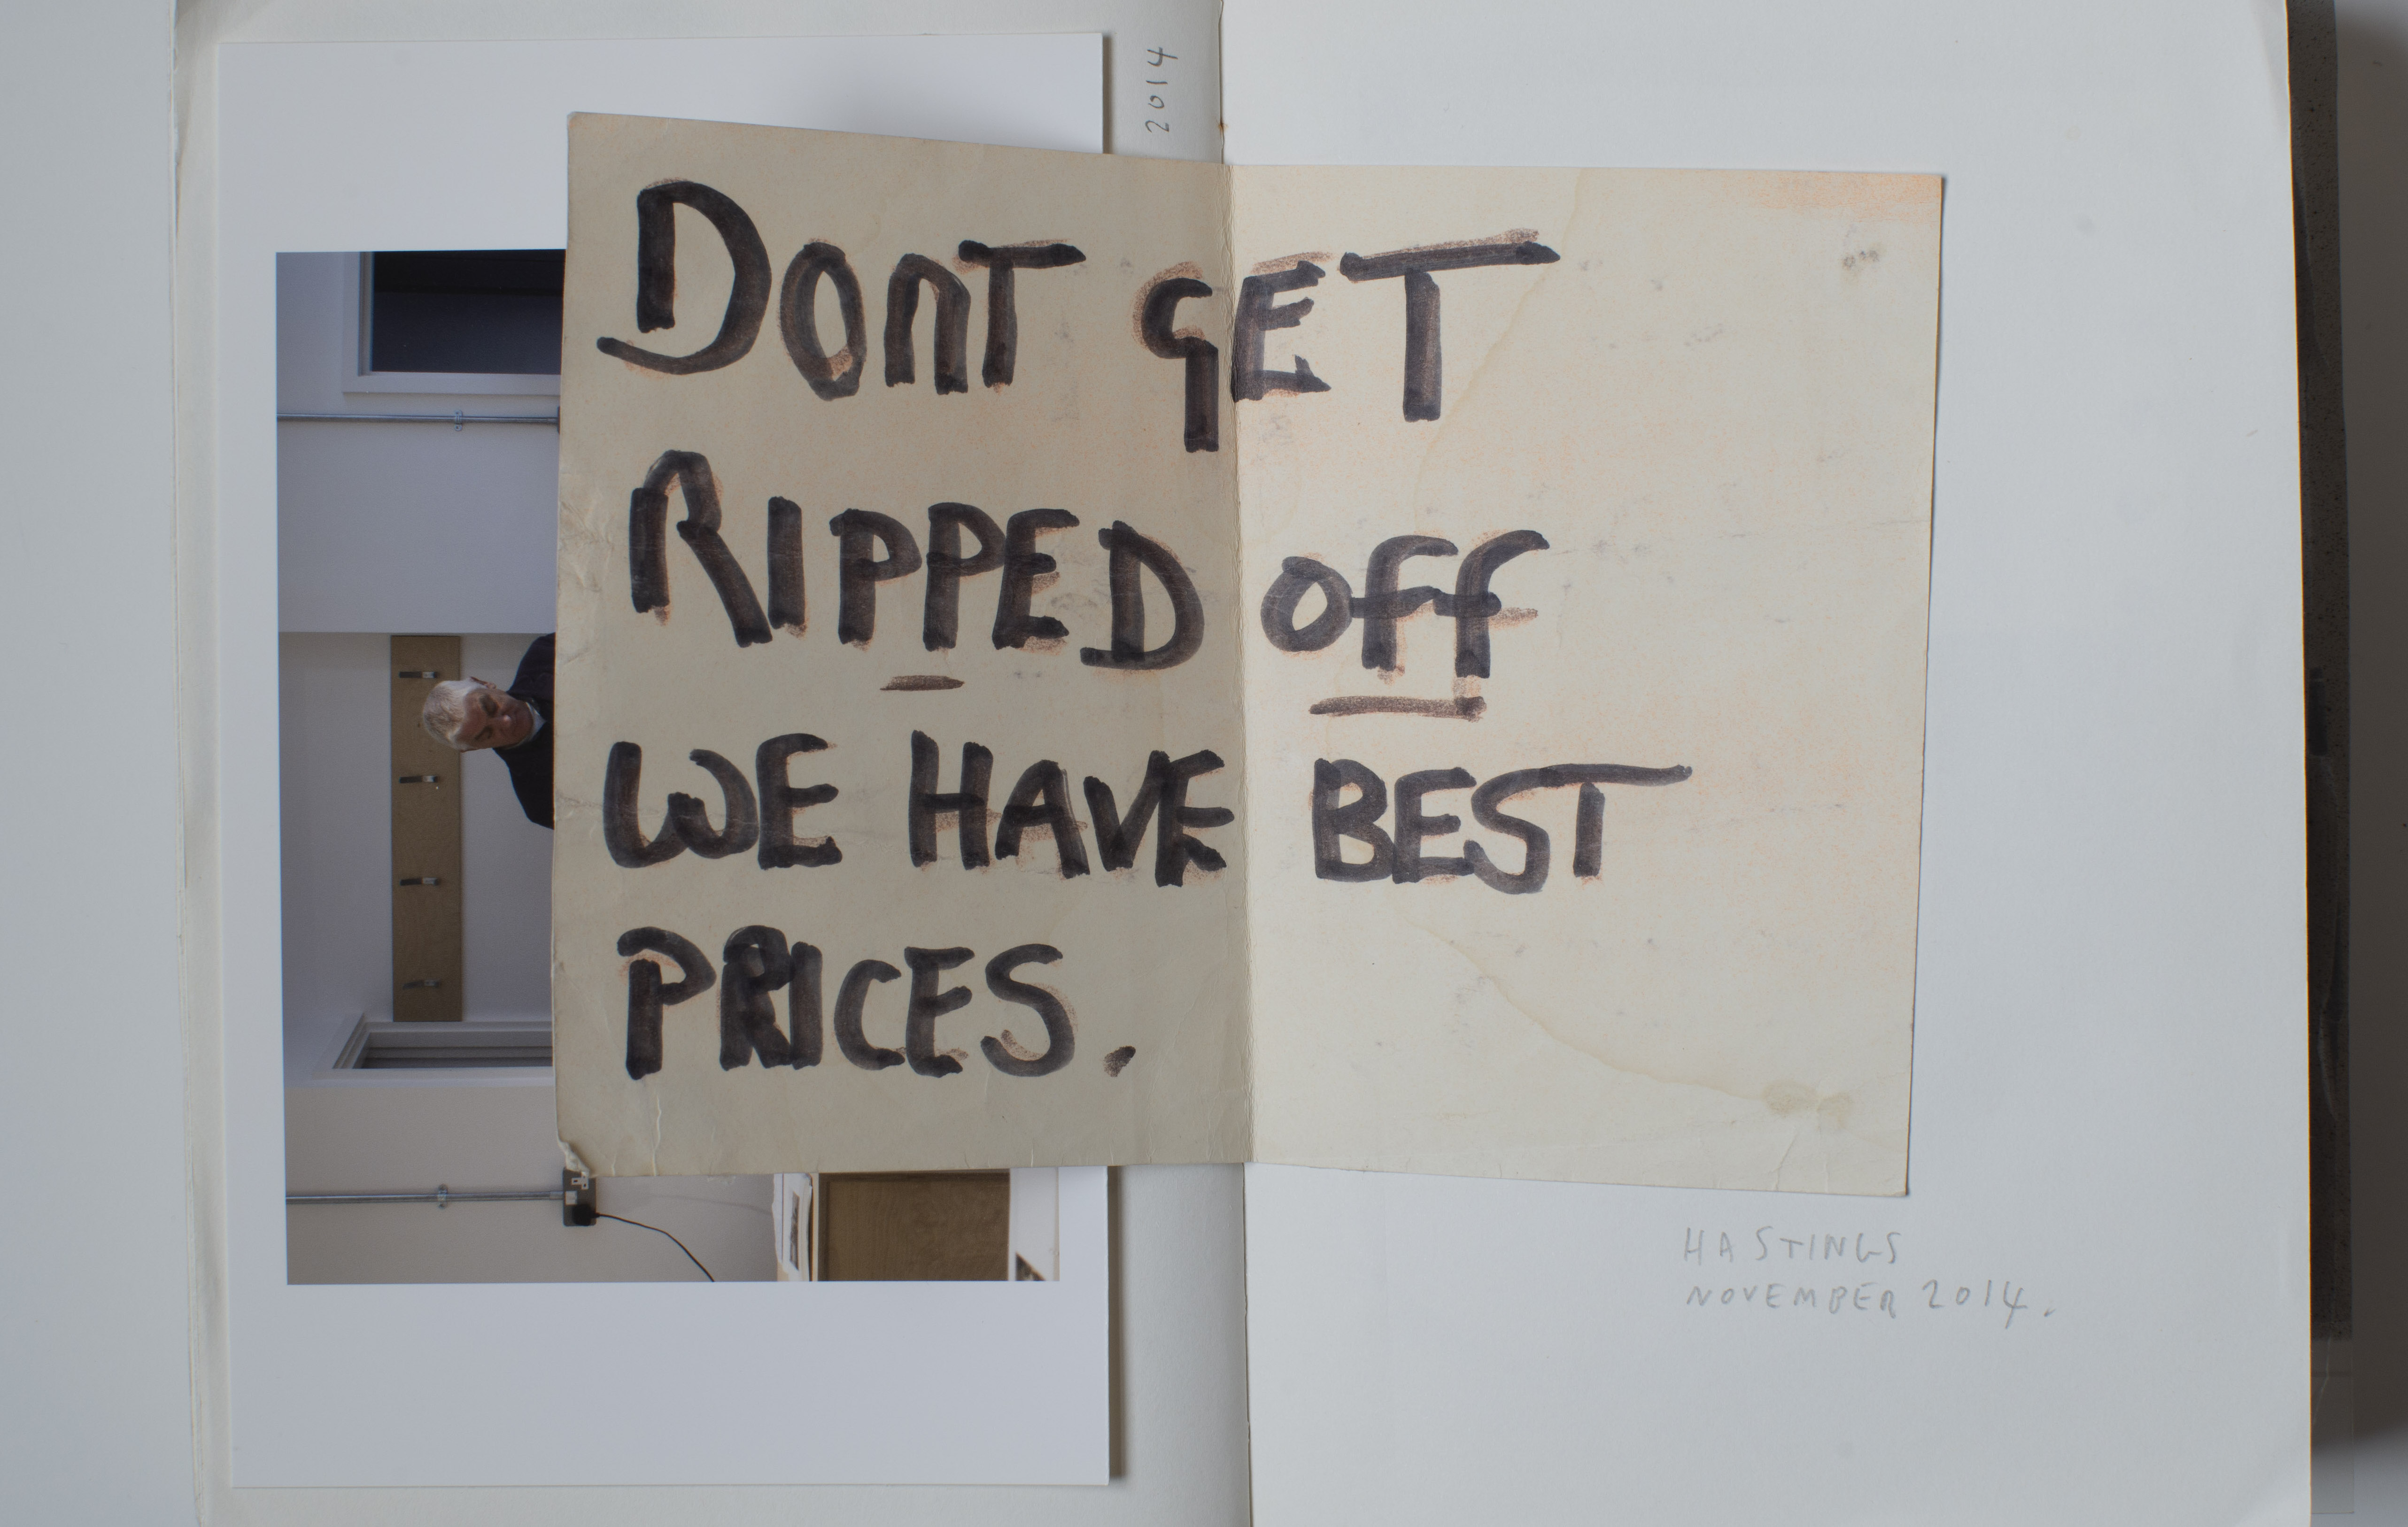 2014
DONT GET
RIPPED OFF
WE HAVE BEST
PRICES.
HASTINGS
NOVEMBER 2014.